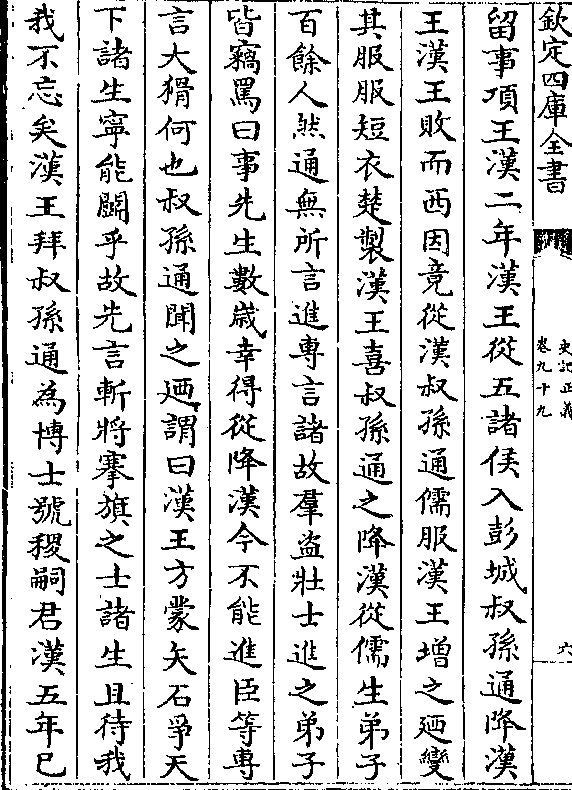 欽定四庫全書
史記正義
卷九十九
六
留事項王漢二年漢王從五諸侯入彭城叔孫通降漢
王漢王敗而西因竟從漢叔孫通儒服漢王增之廼變
其服服短衣楚製漢王喜叔孫通之降漢從儒生弟子
百餘人然通無所言進專言諸故羣盗壯士進之弟子
皆竊罵曰事先生數嵗幸得從降漢今不能進臣等專
言大猾何也叔孫通聞之廼謂曰漢王方蒙矢石爭天
下諸生寧能鬬乎故先言斬將搴旗之士諸生且待我
我不忘矣漢王拜叔孫通為博士號稷嗣君漢五年已